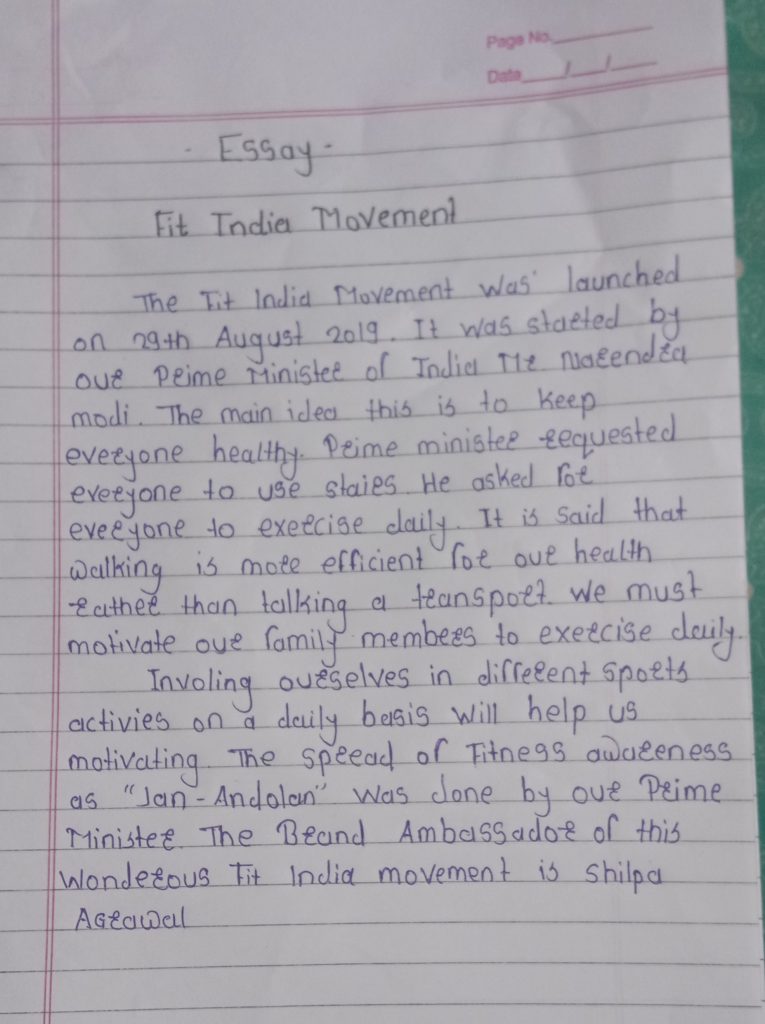 Page No.
Date / /
- Essay -
Fit India Movement
The Fit India Movement was launched
on 29th August 2019. It was started by
our Prime Minister of India Mr Narendra
modi. The main idea this is to keep
everyone healthy. Prime minister requested
everyone to use stairs. He asked for
everyone to exercise daily. It is said that
walking is more efficient for our health
rather than talking a transport. We must
motivate our family members to exercise daily.
Involing ourselves in different sports
activies on a daily basis will help us
motivating. The spread of Fitness awareness
as "Jan - Andolan" was done by our Prime
Minister. The Brand Ambassador of this
wonderous Fit India movement is shilpa
Agrawal